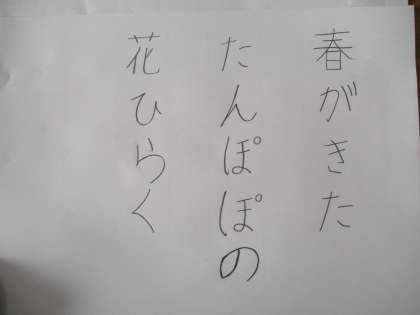 春がきた
たんぽぽの
花ひらく